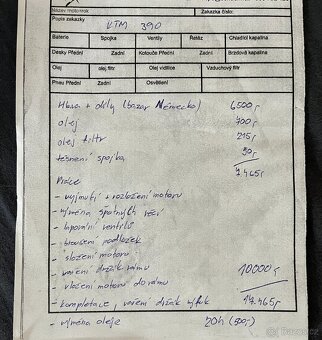 Název motorkol
Zakázka číslo:
Popis zakázky KTM 390
Baterie Spojka Ventily Řetěz Chladící kapalina
Desky Přední Zadní Kotouče Přední Zadní Brzdová kapalina
Olej olej. filtr Olej vidlice Vzduchový filtr
Pneu Přední Zadní Osvětlení
Hlava + díly (bazar Německo) 6500,-
olej 700,-
olej filtr 215,-
těsnění spojka 50,-
7.465,-
Práce
- vyjmutí + rozložení motoru
- výměna špatných věcí
- lapování ventilů
- broušení podložek
- složení motoru
- vaření držák rámu
- vložení motoru do rámu 10000,-
- kompletace, vaření držák výfuk 17.465,-
- výměna oleje 20h (500,-)